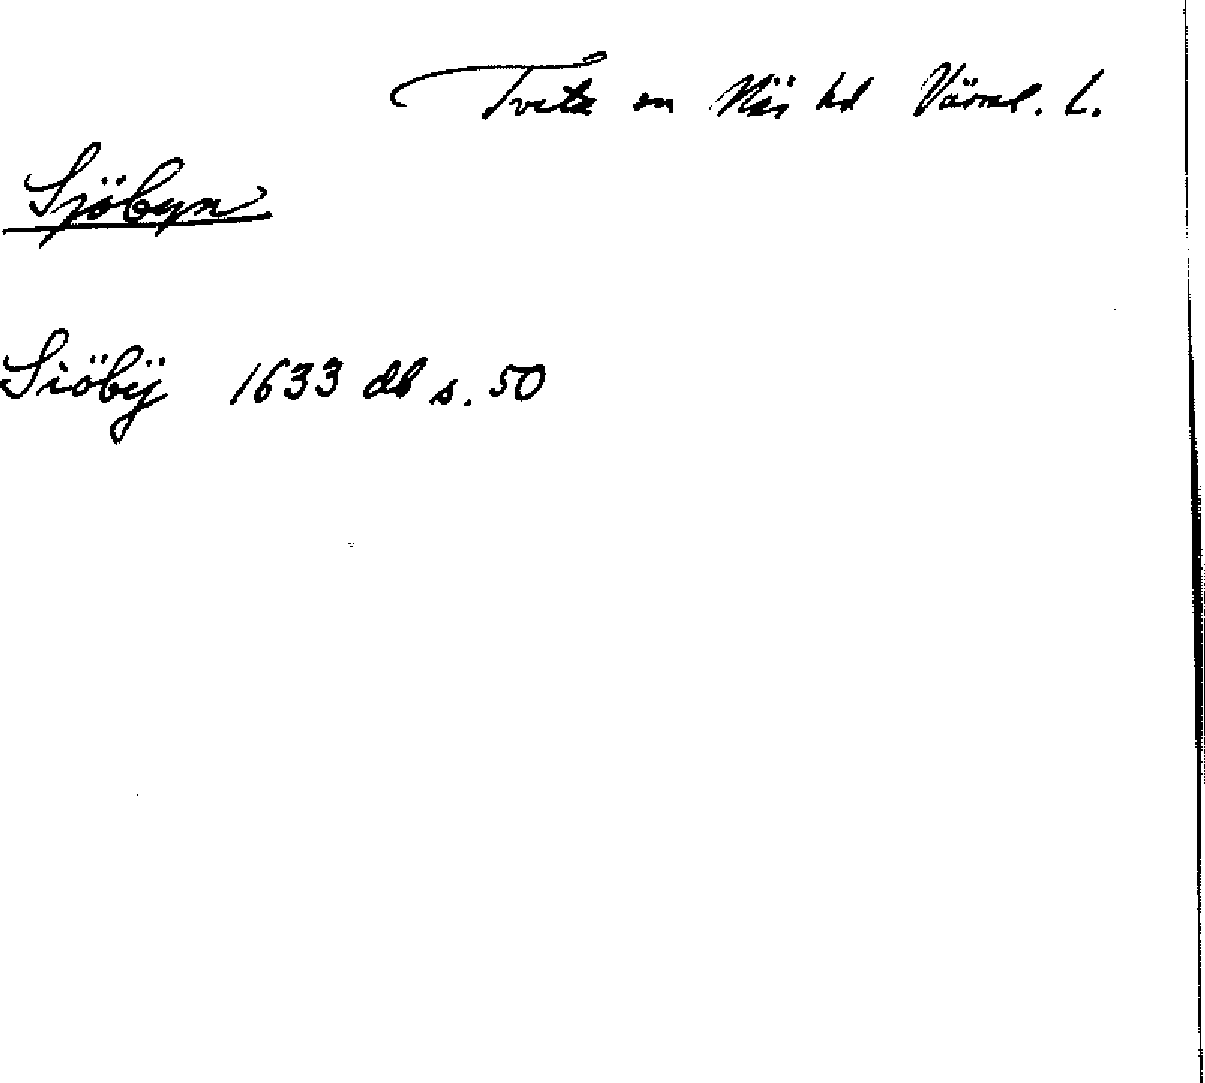 Tveta sn Näs hd Värml. l.
Sjöbyn
Siöbÿ 1633 db s. 50